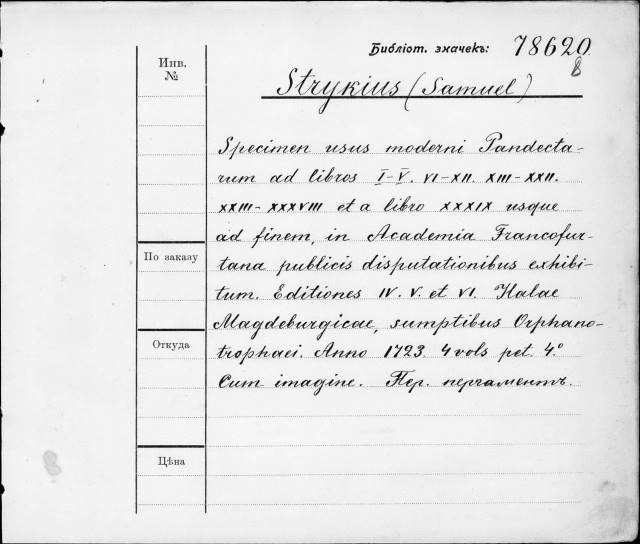 Библіот. значекъ: 78620
8
Инв.
№
Strykius (Samuel)
Specimen usus moderni Pandecta-
rum ad libros I-V. VI-XII. XIII-XXII.
XXIII-XXXVIII et a libro XXXIX usque
ad finem, in Academia Francofur-
По заказу
tana publicis disputationibus exhibi-
tum. Editiones IV. V. et VI. Halae
Magdeburgicae, sumptibus Orphano-
Откуда
trophaei. Anno 1723. 4 vols pet. 4.º
Cum imagine. Пер. пергаментъ.
Цѣна